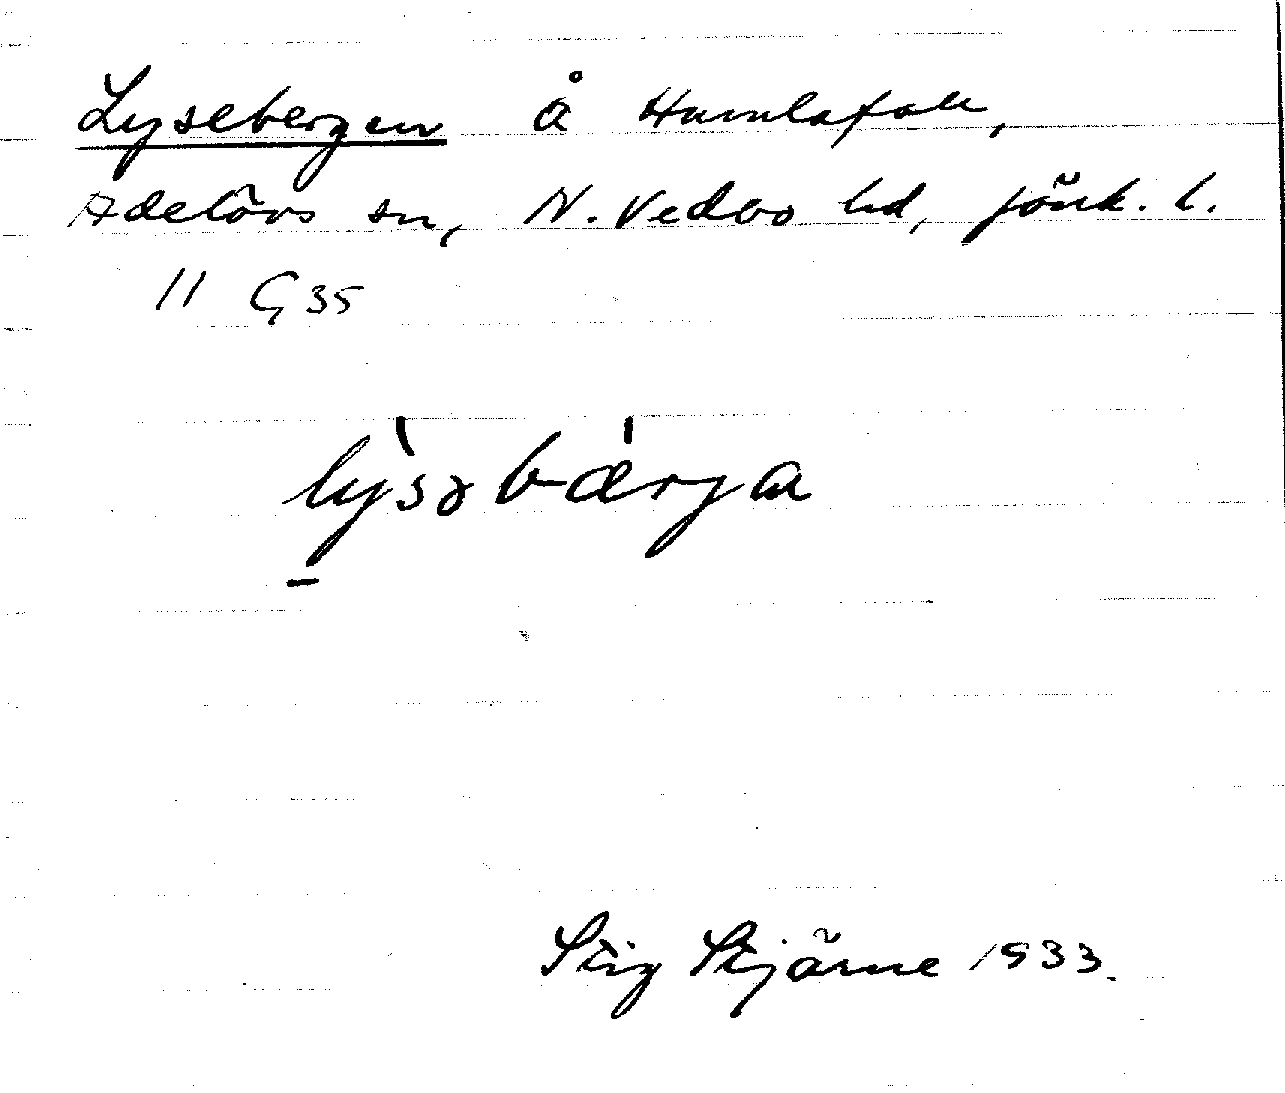 Lysebergen å Humlafall,
Adelövs sn, N. Vedbo hd, Jönk. l.
11 G 35
lỳsəbǽrja
Stig Stjärne 1933.